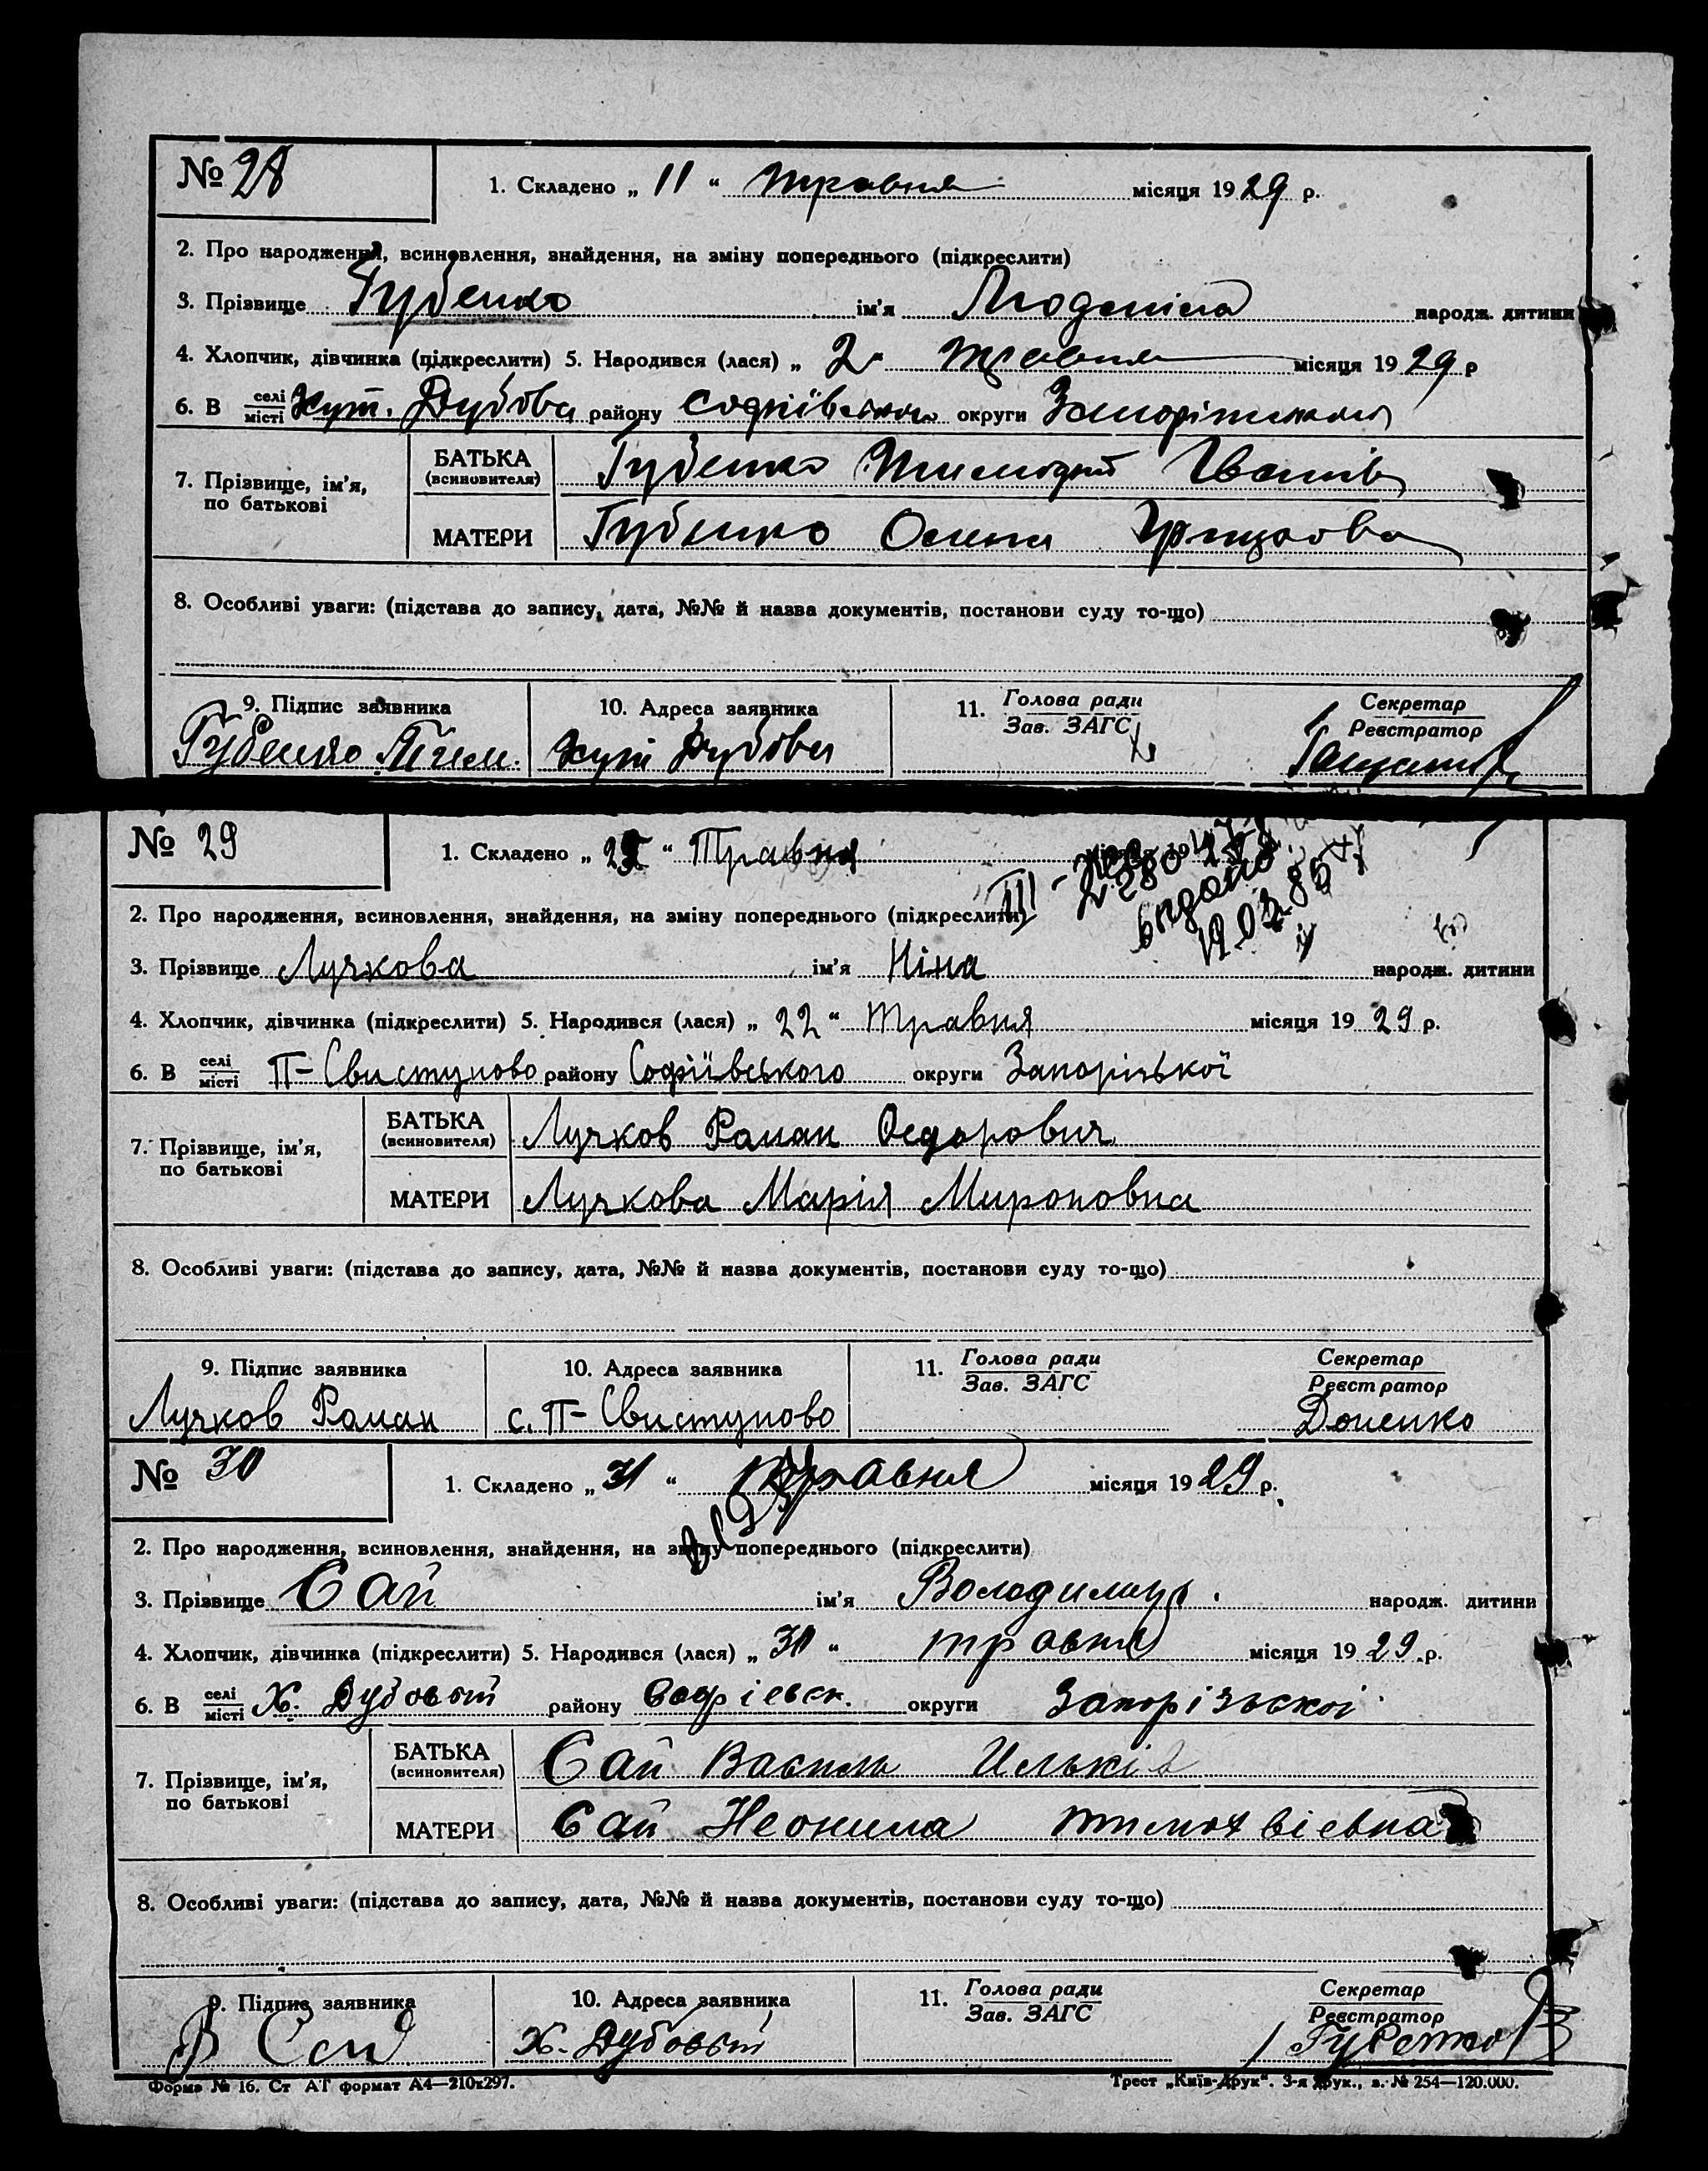 № 28
1. Складено „ 11 “ травня місяця 1929 р.
2. Про народження, всиновлення, знайдення, на зміну попереднього (підкреслити)
3. Прізвище Губенко ім'я Людміла народж. дитини
4. Хлопчик, дівчинка (підкреслити) 5. Народився (лася) „ 2 “ травня місяця 1929 р
6. В селі/місті Хут. Дубова району Софіївського округи Запоріжжя
7. Прізвище, ім'я, по батькові
БАТЬКА (всиновителя) Губенко Тимофій Іванів
МАТЕРИ Губенко Олена Грицкова
8. Особливі уваги: (підстава до запису, дата, №№ й назва документів, постанови суду то-що)
9. Підпис заявника 10. Адреса заявника 11. Голова ради Секретар
Зав. ЗАГС Реєстратор
Губенко Тим. Хут Дубова
№ 29
1. Складено „ “ Травня
2. Про народження, всиновлення, знайдення, на зміну попереднього (підкреслити)
III-
видано
19.03.85
3. Прізвище Лучкова ім'я Ніна народж. дитини
4. Хлопчик, дівчинка (підкреслити) 5. Народився (лася) „ 22 “ Травня місяця 1929 р.
6. В селі/місті П-Свистуново району Софіївського округи Запорізької
7. Прізвище, ім'я, по батькові
БАТЬКА (всиновителя) Лучков Роман Федорович
МАТЕРИ Лучкова Марія Мироновна
8. Особливі уваги: (підстава до запису, дата, №№ й назва документів, постанови суду то-що)
9. Підпис заявника 10. Адреса заявника 11. Голова ради Секретар
Зав. ЗАГС Реєстратор
Лучков Роман с. П-Свистуново Доненко
№ 30
1. Складено „ 31 “ травня місяця 1929 р.
2. Про народження, всиновлення, знайдення, на зміну попереднього (підкреслити)
3. Прізвище Сай ім'я Володимир. народж. дитини
4. Хлопчик, дівчинка (підкреслити) 5. Народився (лася) „ 30 “ травня місяця 1929 р.
6. В селі/місті Х. Дубовый району Софіевск. округи Запорізьскоі
7. Прізвище, ім'я, по батькові
БАТЬКА (всиновителя) Сай Василь Ильків
МАТЕРИ Сай Неонила тимофвієвна
8. Особливі уваги: (підстава до запису, дата, №№ й назва документів, постанови суду то-що)
9. Підпис заявника 10. Адреса заявника 11. Голова ради Секретар
Зав. ЗАГС Реєстратор
В Сай Х. Дубовый Губенко
Форма № 16. Ст АГ формат А4—210х297. Трест „Київ-Друк“. 3-я друк., з. № 254—120.000.